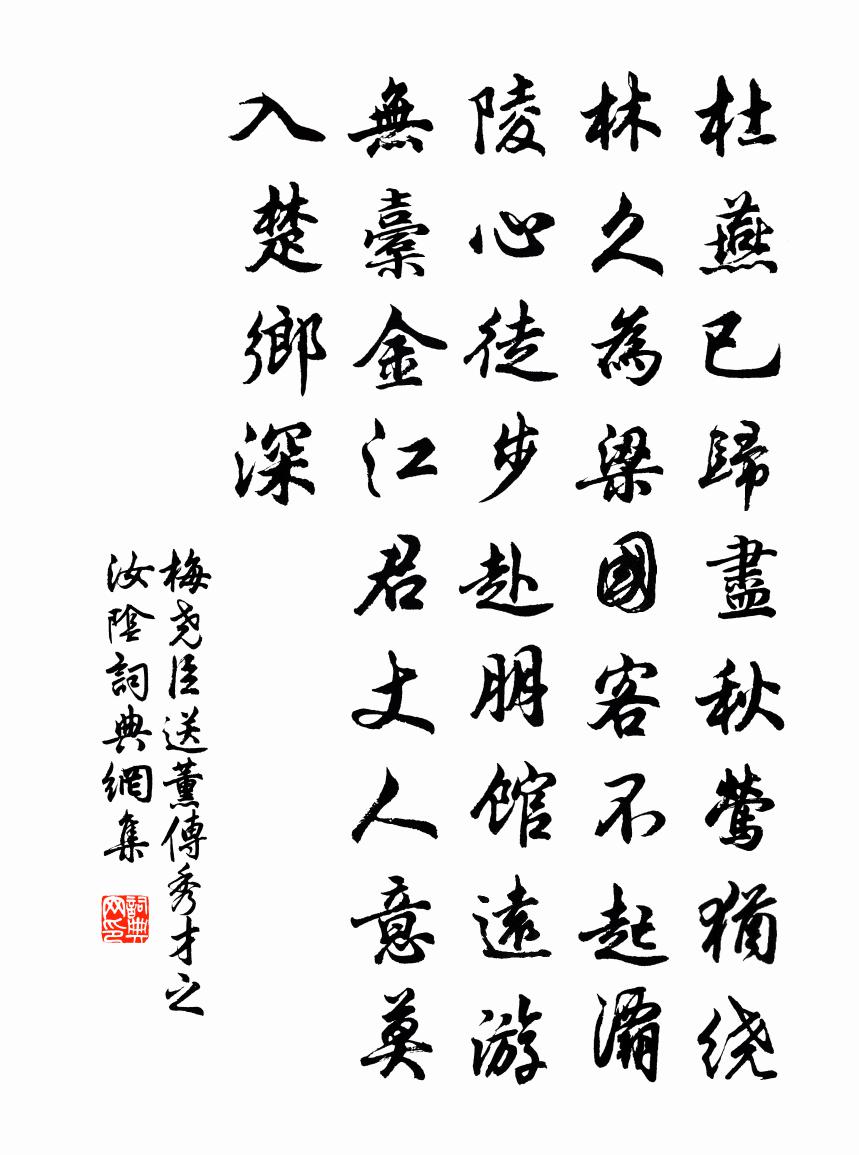 杜燕已歸盡秋鶯猶绕
林久為梁國客不起灞
陵心徒步赴朋館遠游
無橐金江君丈人意莫
入楚鄉深
梅堯臣送薰傳秀才之
汝陰詞典網集
詞典网印